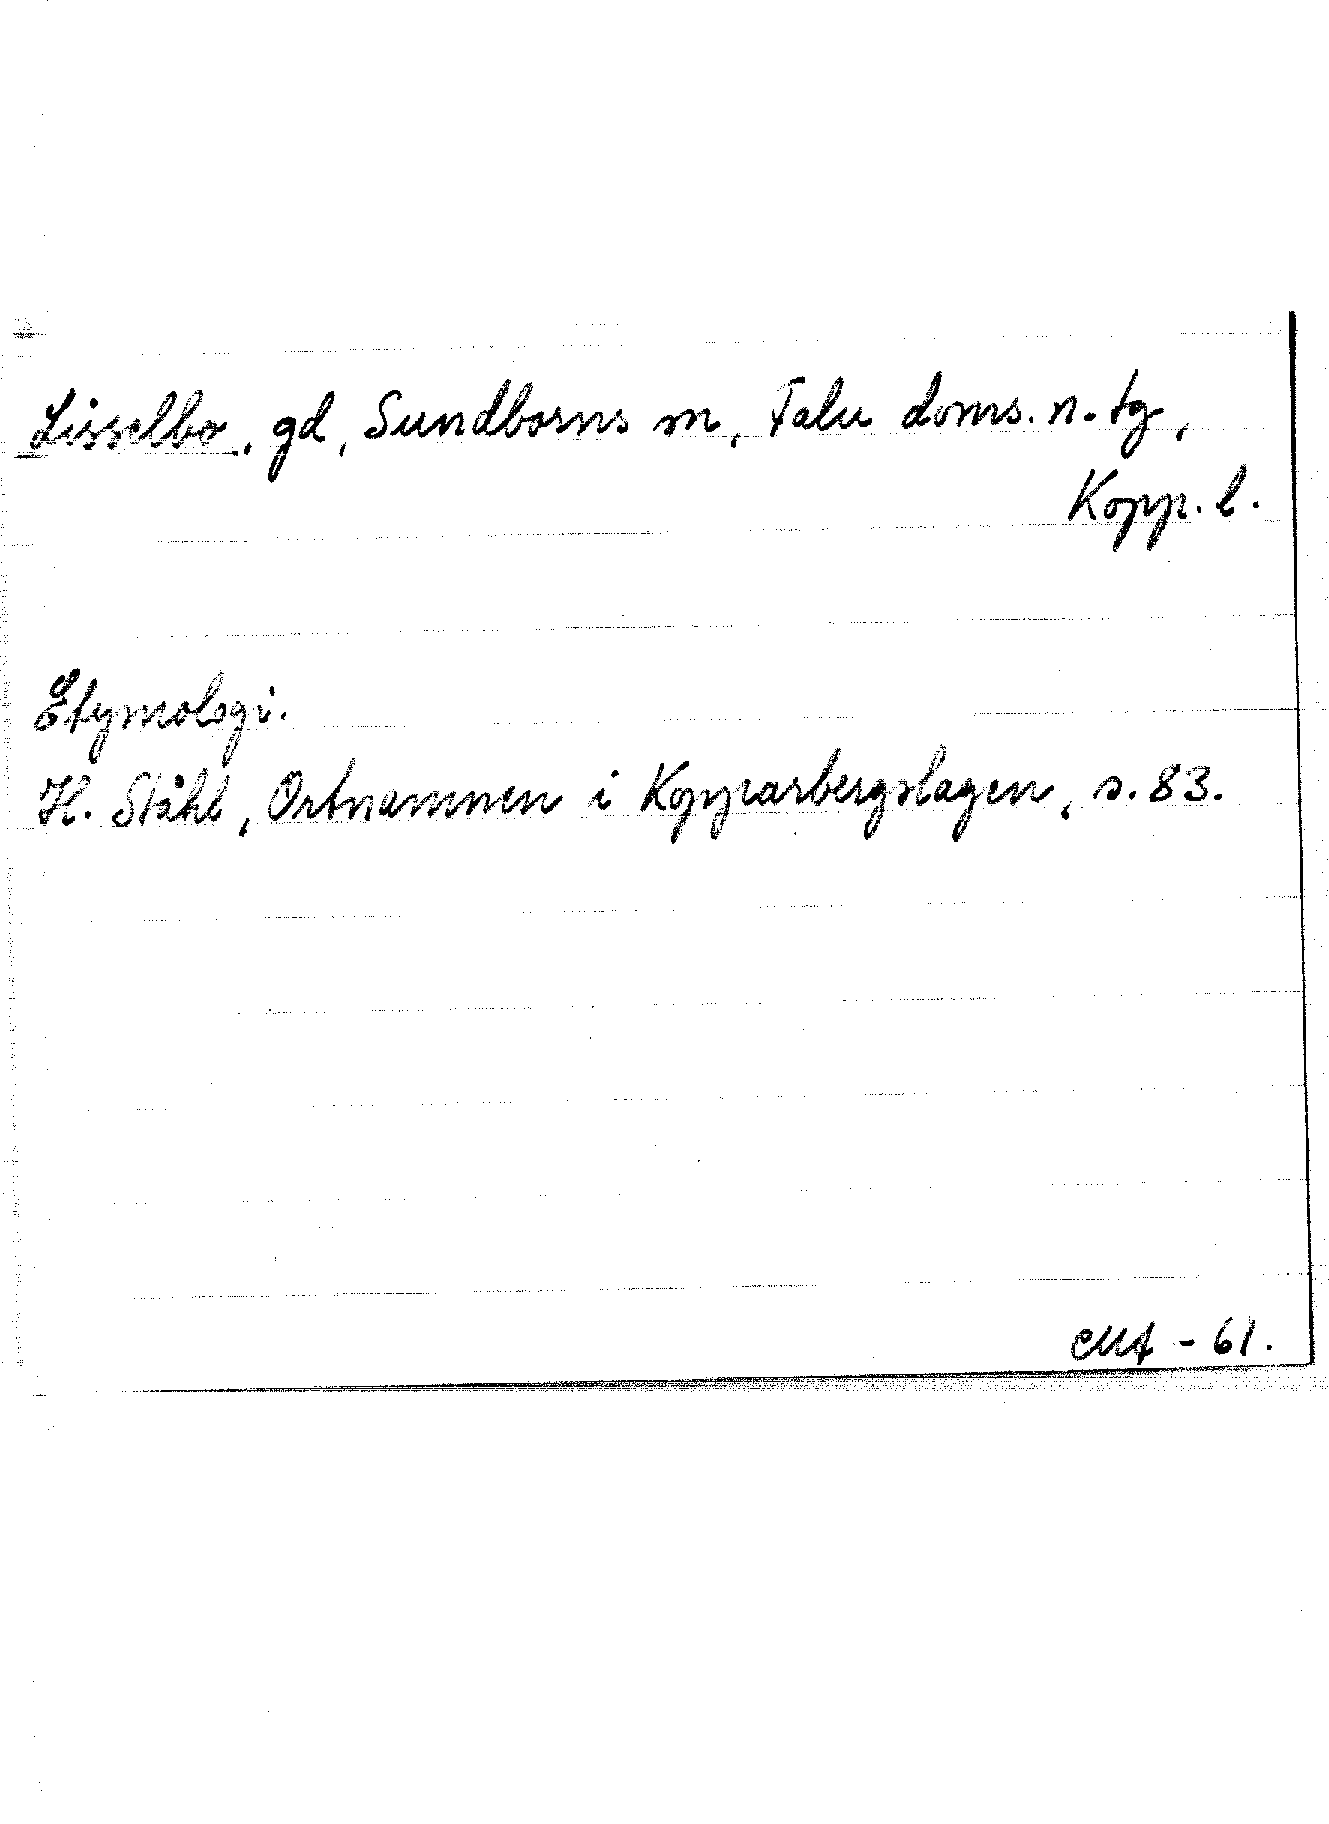 Lisselbo, gd, Sundborns sn, Falu doms. n. tg,
Kopp. l.
Etymologi.
H. Ståhl, Ortnamnen i Kopparbergslagen, s. 83.
- 61.